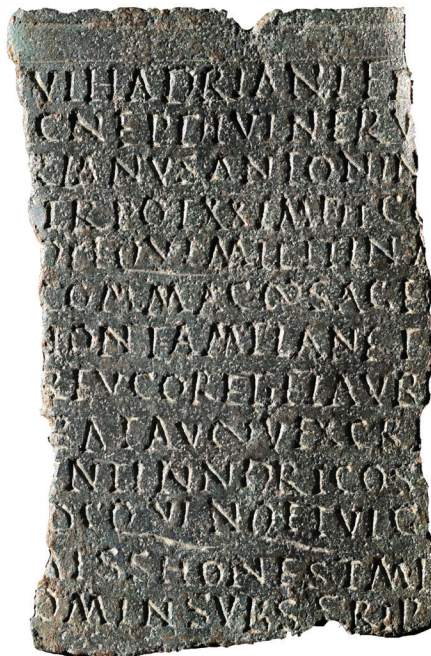 VI HADRIANI F D
C NEP DIVI NERV
RIANVS ANTONIN
TR POT XX IMP II C
EQ QVI MILIT IN A
COMMAG ∞ SAG E
BREVCOR ET I AVR
BATAV ∞ QV EX CRE
NT IN NORICO S
QVINQ ET VIG
MISS HONEST MI
OMIN SVBSSRIP